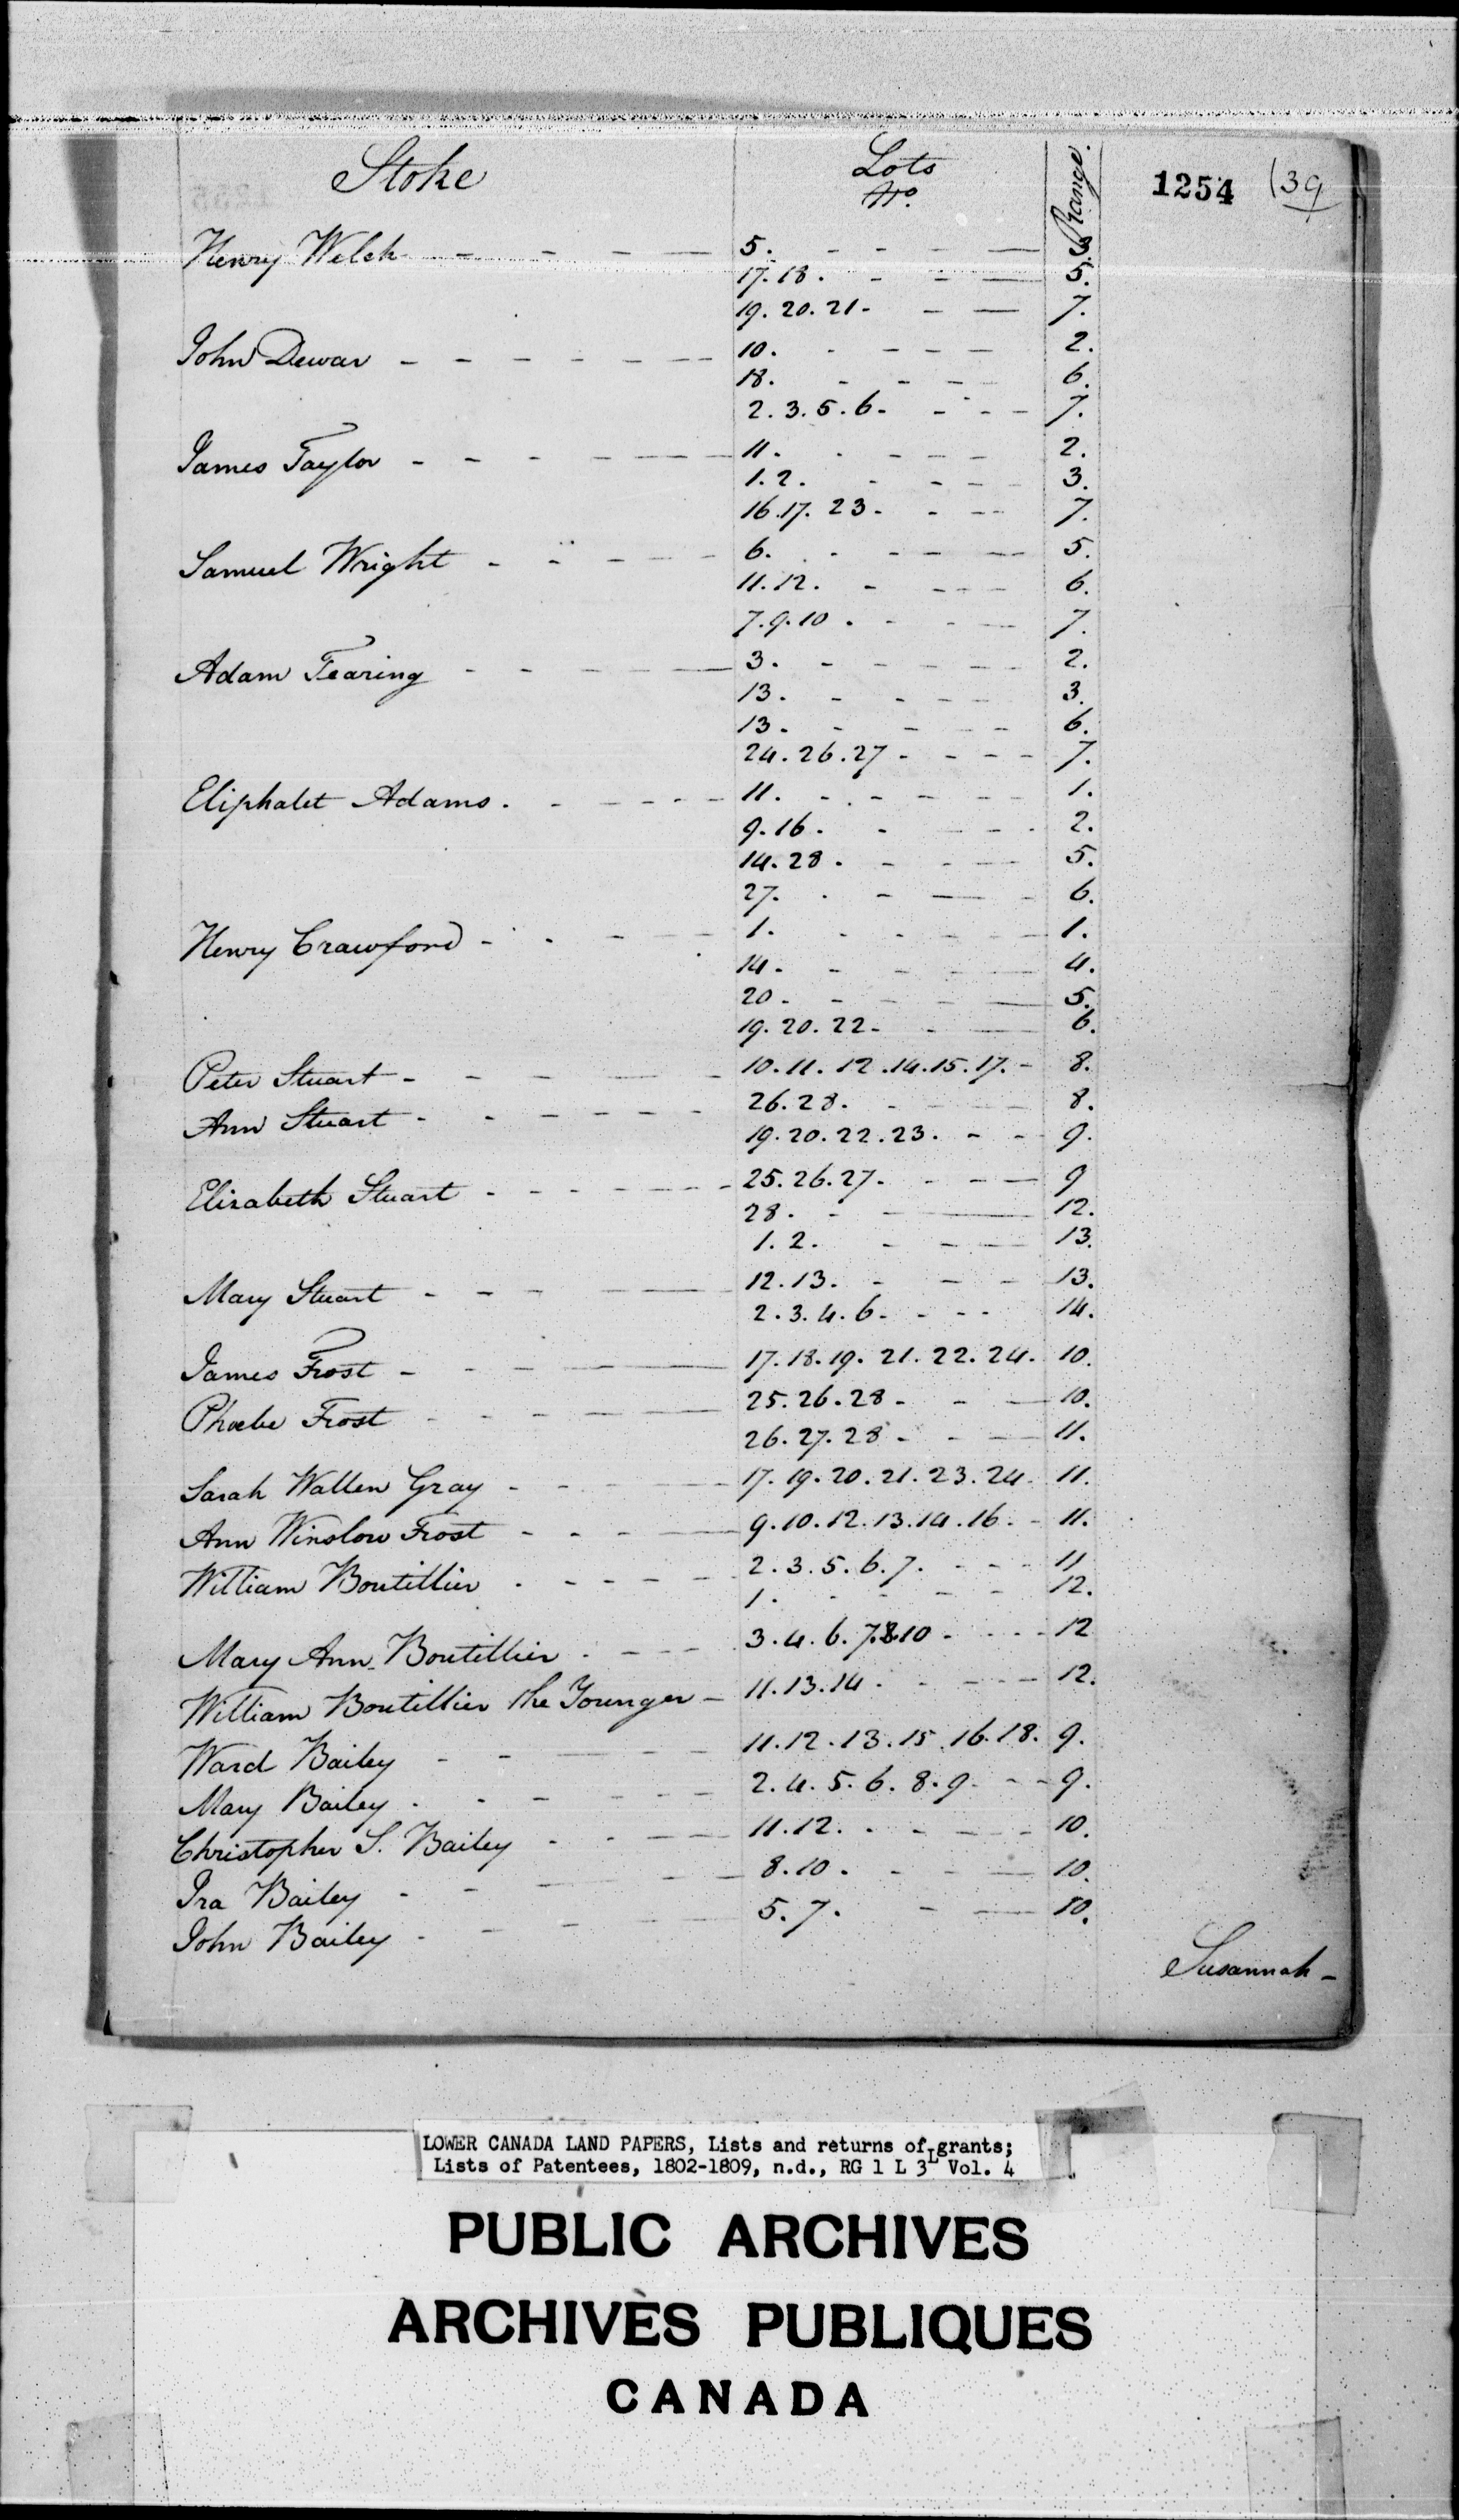 Stoke Lots No. Range. 1254 (39
Henry Welch - - - - 5. - - - - 3.
17.18. - - - 5.
19.20.21 - - - 7.
John Dewar - - - - - - 10. - - - - 2.
18. - - - 6.
2.3.5.6 - - - - 7.
James Taylor - - - - - - 11. - - - - 2.
1.2. - - - - 3.
16.17.23 - - - 7.
Samuel Wright - - - - - 6. - - - - 5.
11.12. - - - - 6.
7.9.10. - - - 7.
Adam Tearing - - - - - 3. - - - - - 2.
13. - - - - 3.
13. - - - - 6.
24.26.27 - - - - 7.
Eliphalet Adams. - - - - - 11. - - - - - 1.
9.16. - - - - 2.
14.28. - - - - 5.
27. - - - - 6.
Henry Crawford - - - - 1. - - - - - 1.
14. - - - - 4.
20 - - - - - 5.
19.20.22 - - - 6.
Peter Stuart - - - - - 10.11.12.14.15.17. - 8.
Ann Stuart - - - - - - 26.28. - - - - 8.
19.20.22.23. - - 9.
Elizabeth Stuart - - - - - - 25.26.27. - - - 9
28. - - - 12.
1.2. - - - - 13.
Mary Stuart - - - - 12.13. - - - 13.
2.3.4.6. - - - 14.
James Frost - - - - - 17.18.19.21.22.24. 10.
Phoebe Frost - - - - - 25.26.28 - - - 10.
26.27.28 - - - 11.
Sarah Wallen Gray - - - - - 17.19.20.21.23.24. 11.
Ann Winslow Frost - - - - 9.10.12.13.14.16. - 11.
William Boutillier - - - - - 2.3.5.6.7. - - - 11
1. - - - - 12.
Mary Ann Boutillier - - - 3.4.6.7.8.10 - - - - 12
William Boutillier the Younger - 11.13.14. - - - - 12.
Ward Bailey - - - - 11.12.13.15.16.18. 9.
Mary Bailey - - - - - - 2.4.5.6.8.9 - - - 9.
Christopher S. Bailey - - - - 11.12. - - - - 10.
Ira Bailey - - - - - 8.10. - - - 10.
John Bailey - - - - 5.7. - - - 10.
Susannah -
LOWER CANADA LAND PAPERS, Lists and returns of grants;
Lists of Patentees, 1802-1809, n.d., RG 1 L 3L Vol. 4
PUBLIC ARCHIVES
ARCHIVES PUBLIQUES
CANADA